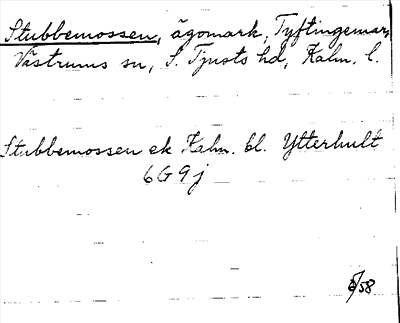 Stubbemossen, ägomark, Tyftingemar,
Västrums sn, S. Tjusts hd, Kalm. l.
Stubbemossen ek Kalm. bl. Ytterhult
6G9j
/58